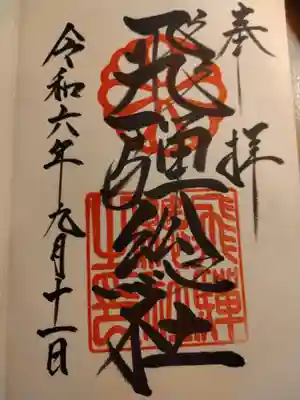 奉拝
飛騨総社
飛騨
総社
之印
令和六年九月十一日